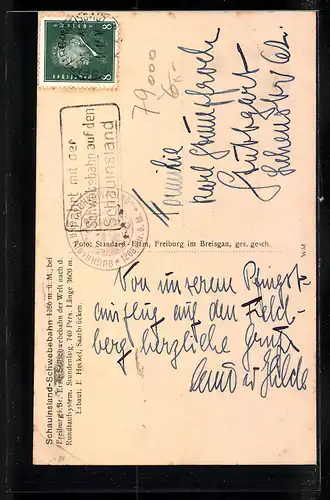 Schauinsland-Schwebebahn 1286 m ü. M., bei
Freiburg i. Br. Erste Schwebebahn der Welt nach d.
Rundlaufsystem. Stundenleg. 740 Pers. Länge 3600 m.
Erbaut: E. Heckel, Saarbrücken.
Fahrt mit der
Schwebebahn auf den
Schauinsland
8 8
79000
6,-
Foto: Standard-Film, Freiburg im Breisgau, ges. gesch.
W.M.
Familie
Karl
Stuttgart
Von unserem Pfingst-
ausflug auf den Feld-
berg herzliche Grüße
u Hilde